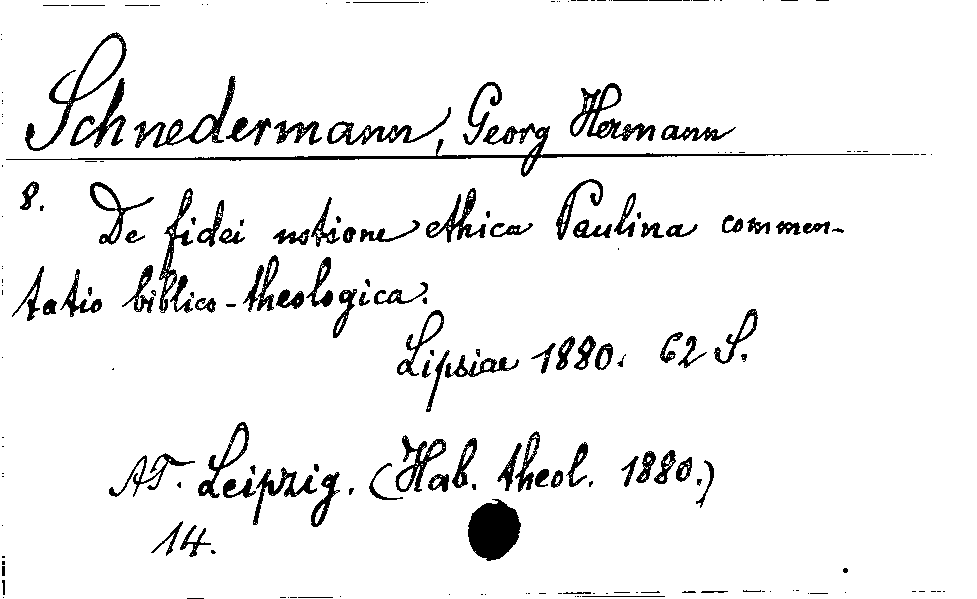 Schnedermann, Georg Hermann
8. De fidei notione ethica Paulina commen-
tatio biblico-theologica.
Lipsiae 1880. 62 S.
AT. Leipzig. (Hab. theol. 1880.)
14.